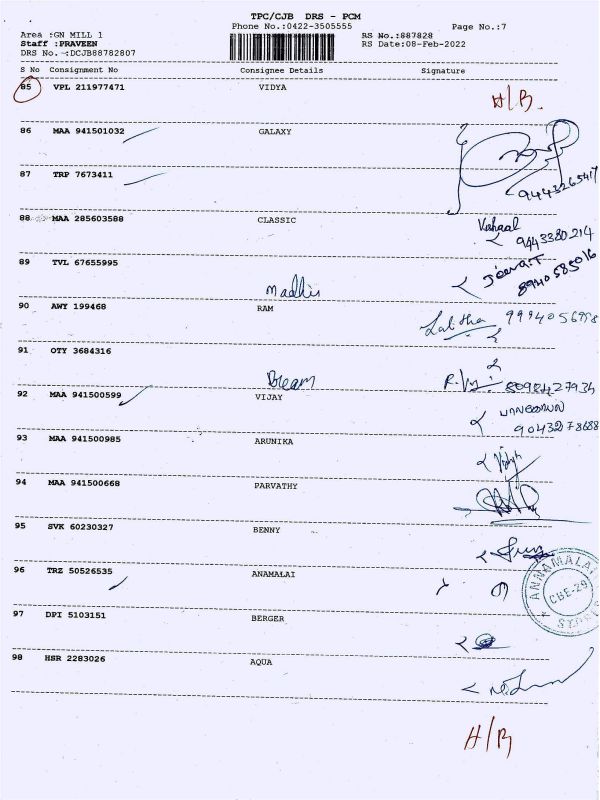 TPC/CJB DRS - PCM
Phone No.:0422-3505555
Page No.:7
Area :GN MILL 1
RS No.:887828
Staff :PRAVEEN
RS Date:08-Feb-2022
DRS No. :DCJB88782807
S No Consignment No Consignee Details Signature
85 VPL 211977471 VIDYA
H/B.
86 MAA 941501032 GALAXY
87 TRP 7673411
9443265417
88 MAA 285603588 CLASSIC
9443380214
89 TVL 67655995
Jeeva.T
8940585016
Madhis
90 AWY 199468 RAM
Lalitha
91 OTY 3684316
Dream
R.Vij
8098427934
92 MAA 941500599 VIJAY
9043278688
93 MAA 941500985 ARUNIKA
94 MAA 941500668 PARVATHY
95 SVK 60230327 BENNY
96 TRZ 50526535 ANAMALAI
ANNAMALAI
CBE-29
97 DPI 5103151 BERGER
98 HSR 2283026 AQUA
H/B